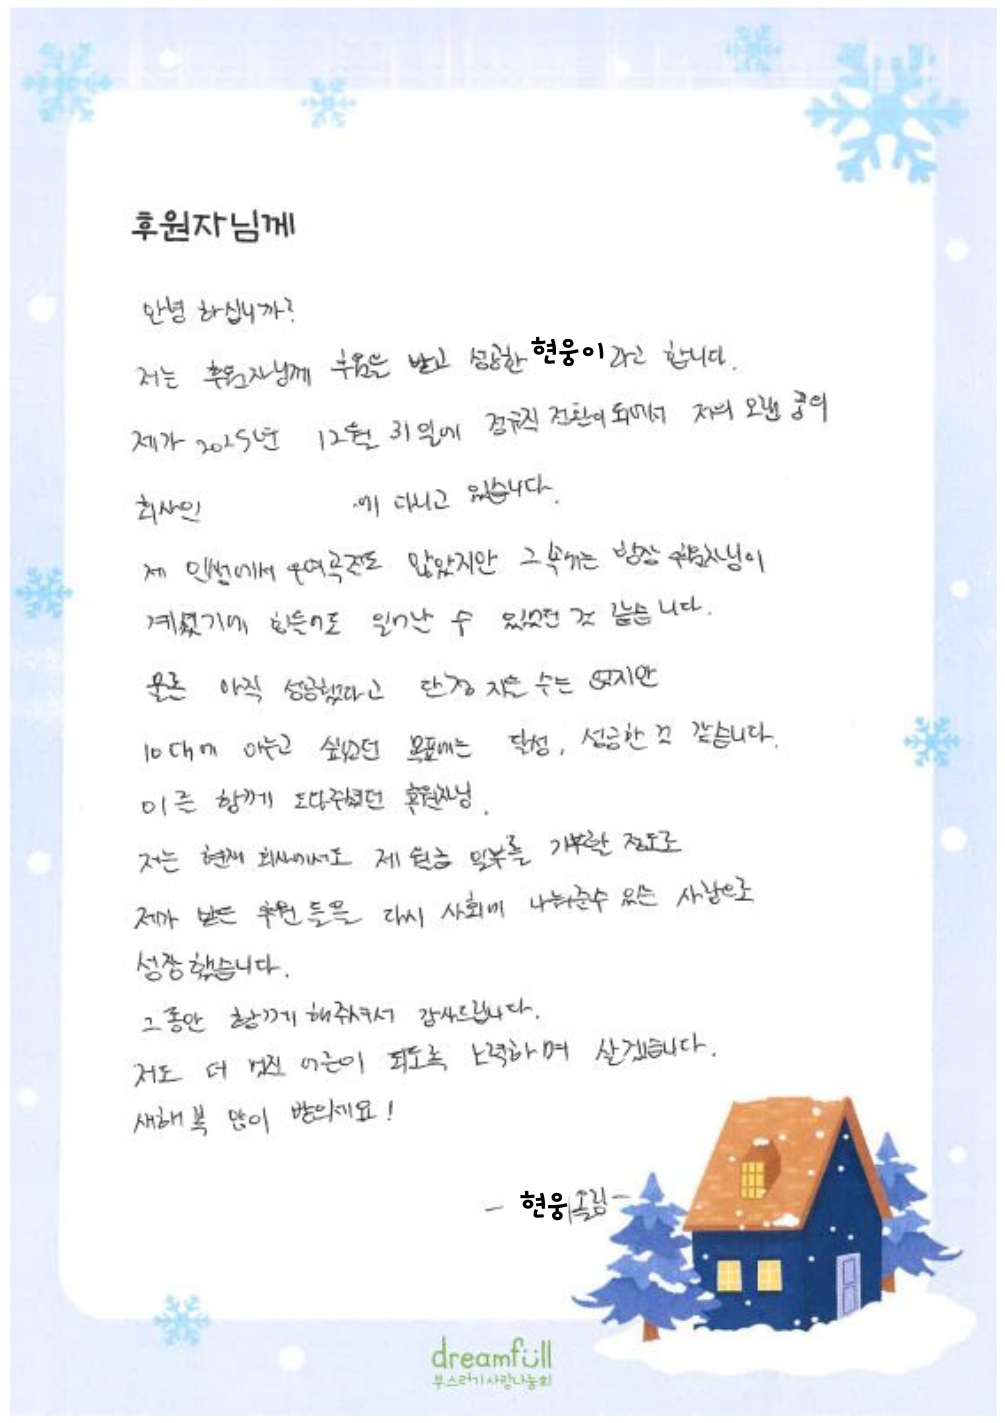 후원자님께
안녕 하십니까?
저는 후원자님께 후원을 받고 성공한 현웅이라고 합니다.
제가 2025년 12월 31일에 정규직 전환이 되면서 저의 오랜 꿈의
회사인 에 다니고 있습니다.
제 인생에서 우여곡절도 많았지만 그 속에는 항상 후원자님이
계셨기에 힘들어도 일어난 수 있었던 것 같습니다.
물론 아직 성공했다고 단정 지을 수는 없지만
10대에 이루고 싶었던 목표에는 달성, 성공한 것 같습니다.
이를 함께 도와주셨던 후원자님.
저는 현재 회사에서도 제 월급 일부를 기부할 정도로
제가 받은 후원 들을 다시 사회에 나눠줄수 있는 사람으로
성장 했습니다.
그동안 함께 해주셔서 감사드립니다.
저도 더 멋진 어른이 되도록 노력하며 살겠습니다.
새해 복 많이 받으세요!
- 현웅 올림 -
dreamfull
부스러기사랑나눔회